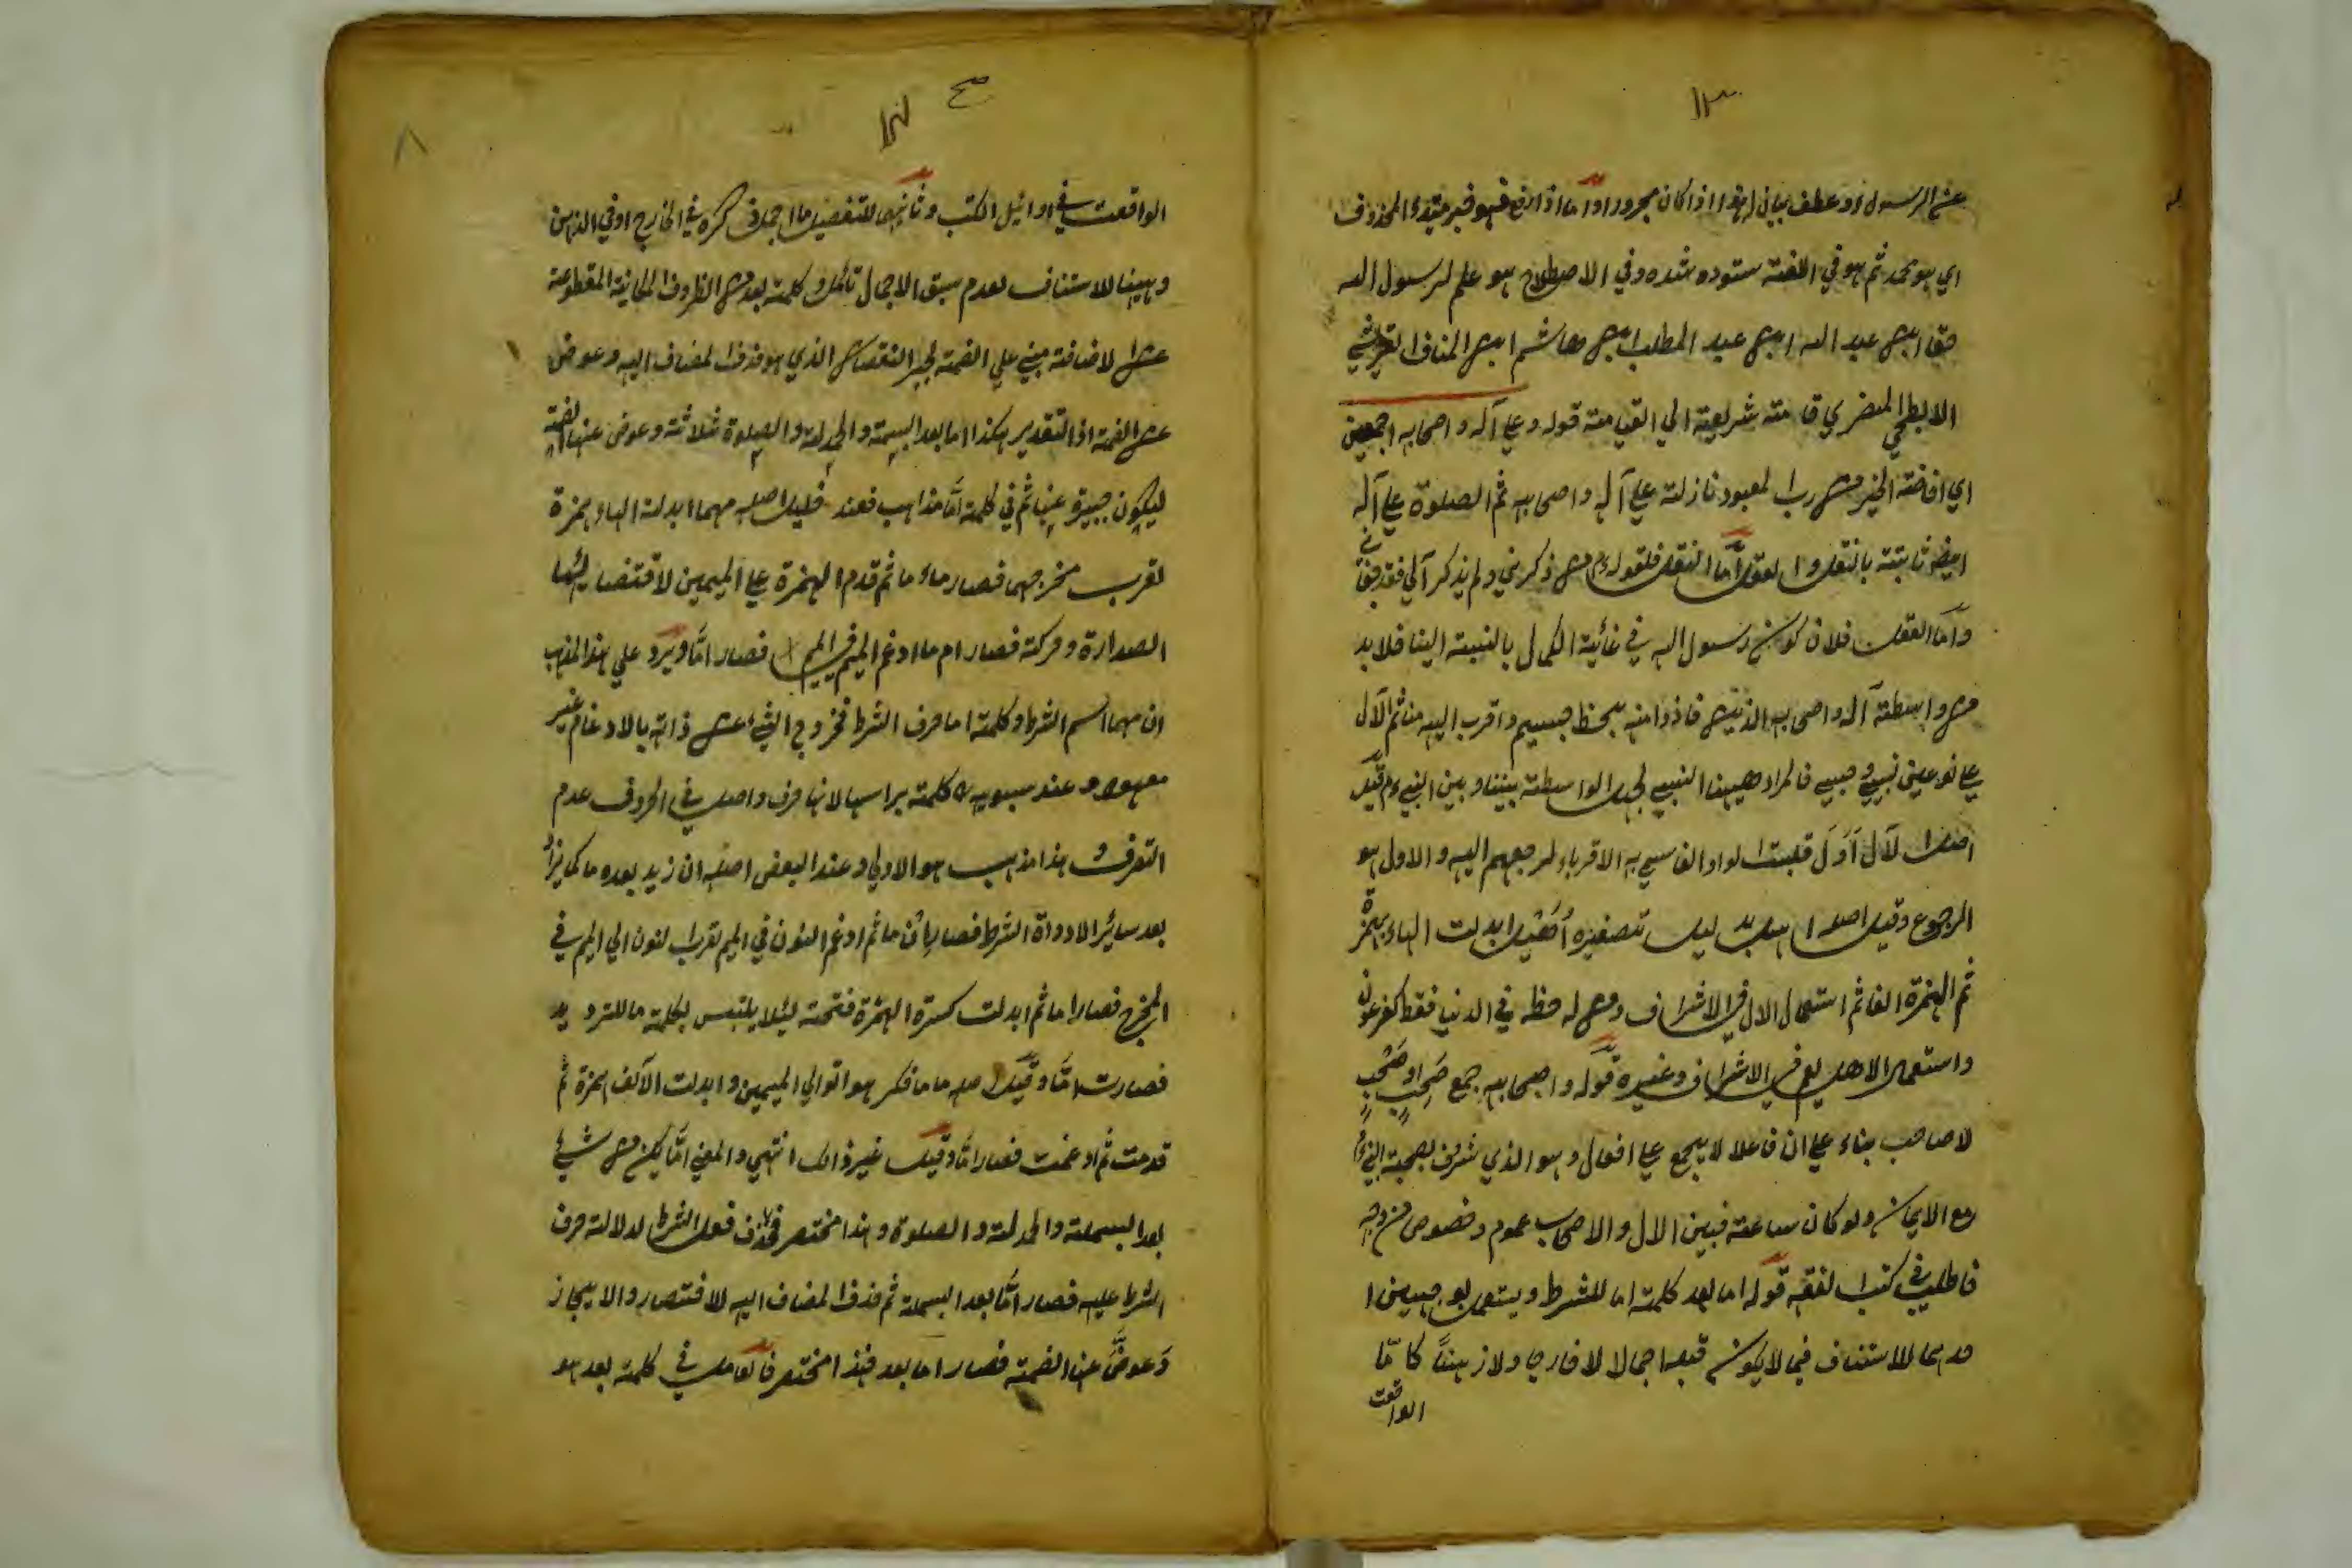 ۱۳
عن الرسول او عطف بيان له هذا اذا كان مجرورا واما اذا رفع فهو خبر مبتدء المحذوف
اي هو محمد ثم هو في اللغة ستوده شده وفي الاصطلاح هو علم لرسول الله
حقا ابن عبد الله ابن عبد المطلب ابن هاشم ابن المناف القريشي
الابطحي المضري قامته شريعته الي القيامته قوله وعلي آله واصحابه اجمعين
اي افاضته الخير من رب المعبود نازلته علي آله واصحابه ثم الصلوة علي آله
ايضا ثابتته بالنقل والعقل اما النقل فلقوله من ذكرني ولم يذكر آلي فقد جفاني
واما العقل فلان كون رسول الله في غائية الكمال بالنسبته الينا فلا بد
من واسطته آله واصحابه الذين فاذوا منه بحظ جسيم واقرب اليه منا ثم الآل
علي نوعين نسبي وحسبي فالمراد ههنا النسبي لجهل الواسطته بيننا وبين النبي قيل
اصل الآل اَوَل قلبت الواو الفا سمي به الاقرباء لرجعهم اليه والاول هو
الرجوع وقيل اصله اهل بدليل تصغيره اُهَيل ابدلت الهاء بهمزة
ثم الهمزة الفا ثم استعمال الال في الاشراف ومن له حظ في الدنيا فقط كفرعون
واستعمال الاهل يعم في الاشراف وغيره قوله واصحابه جمع صَحِب او صَحْب
لا صاحب بناء علي ان فاعلا لا يجمع علي افعال وهو الذي شرف بصحبة النبي
مع الايمان ولو كان ساعته فبين الال والاصحاب عموم وخصوص من وجه
فاطلب في كتب الفقه قوله اما بعد كلمته اما للشرط ويستعمل بوجهين ا
حدهما للاستئناف فيما لا يكون قبله اجمالا لا خارجا ولا ذهنًا كامّا
الواقعت
۱۴
۸
الواقعت في اوائيل الكتب وثانيهما للتفصيل ما اجمل ذكره في الخارج او في الذهن
وههنا للاستئناف لعدم سبق الاجمال تامل وكلمته بعد من الظروف المكانية المقطوعة
عن الاضافته مبني علي الضمته لجبر النقصان الذي هو حذف المضاف اليه وعوض
عن الضمته اذ التقدير هكذا اما بعد البسمته والحمدلته والصلوة ثلاثته وعوض عنها الضمته
ليكون جبيرة عنها ثم في كلمته امّا مذاهب فعند خليل اصله مهما ابدلت الهاء همزة
لقرب مخرجهما فصار ماء ما ثم قدم الهمزة علي الميمين لاقتضائها
الصدارة وحركته فصار ام ما ادغم الميم في الميم فصار امّا ويرد علي هذا المذهب
ان مهما اسم الشرط وكلمته اما حرف الشرط فخروج الشيء عن ذاته بالادغام غير
معهود وعند سيبويه كلمته براسها لانها حرف واصل في الحروف عدم
التصرف وهذا مذهب هو الاولي وعند البعض اصله ان زيد بعده ما كما يزاد
بعد سائر الادواة الشرط فصار اِن ما ثم ادغم النون في الميم لقرب النون الي الميم في
المخرج فصار اما ثم ابدلت كسرة الهمزة فتحته لئلا يلتبس بكلمته ما للترديد
فصارت امّا وقيل اصله ما ما فكر هوا توالي الميمين وابدلت الآلف همزة ثم
قدمت ثم ادغمت فصار امّا وقيل غير ذالك انتهي والمعني امّا يكن من شيء
بعد البسملته والحمدلته والصلوة وهذا مختصر فحذف فعل الشرط لدلالته حرف
الشرط عليه فصار امّا بعد البسملة ثم حذف المضاف اليه لاختصار والايجاز
وَعوضَّ عنها الضمته فصار اما بعد فهذا مختصر فالعامل في كلمته بعد هو